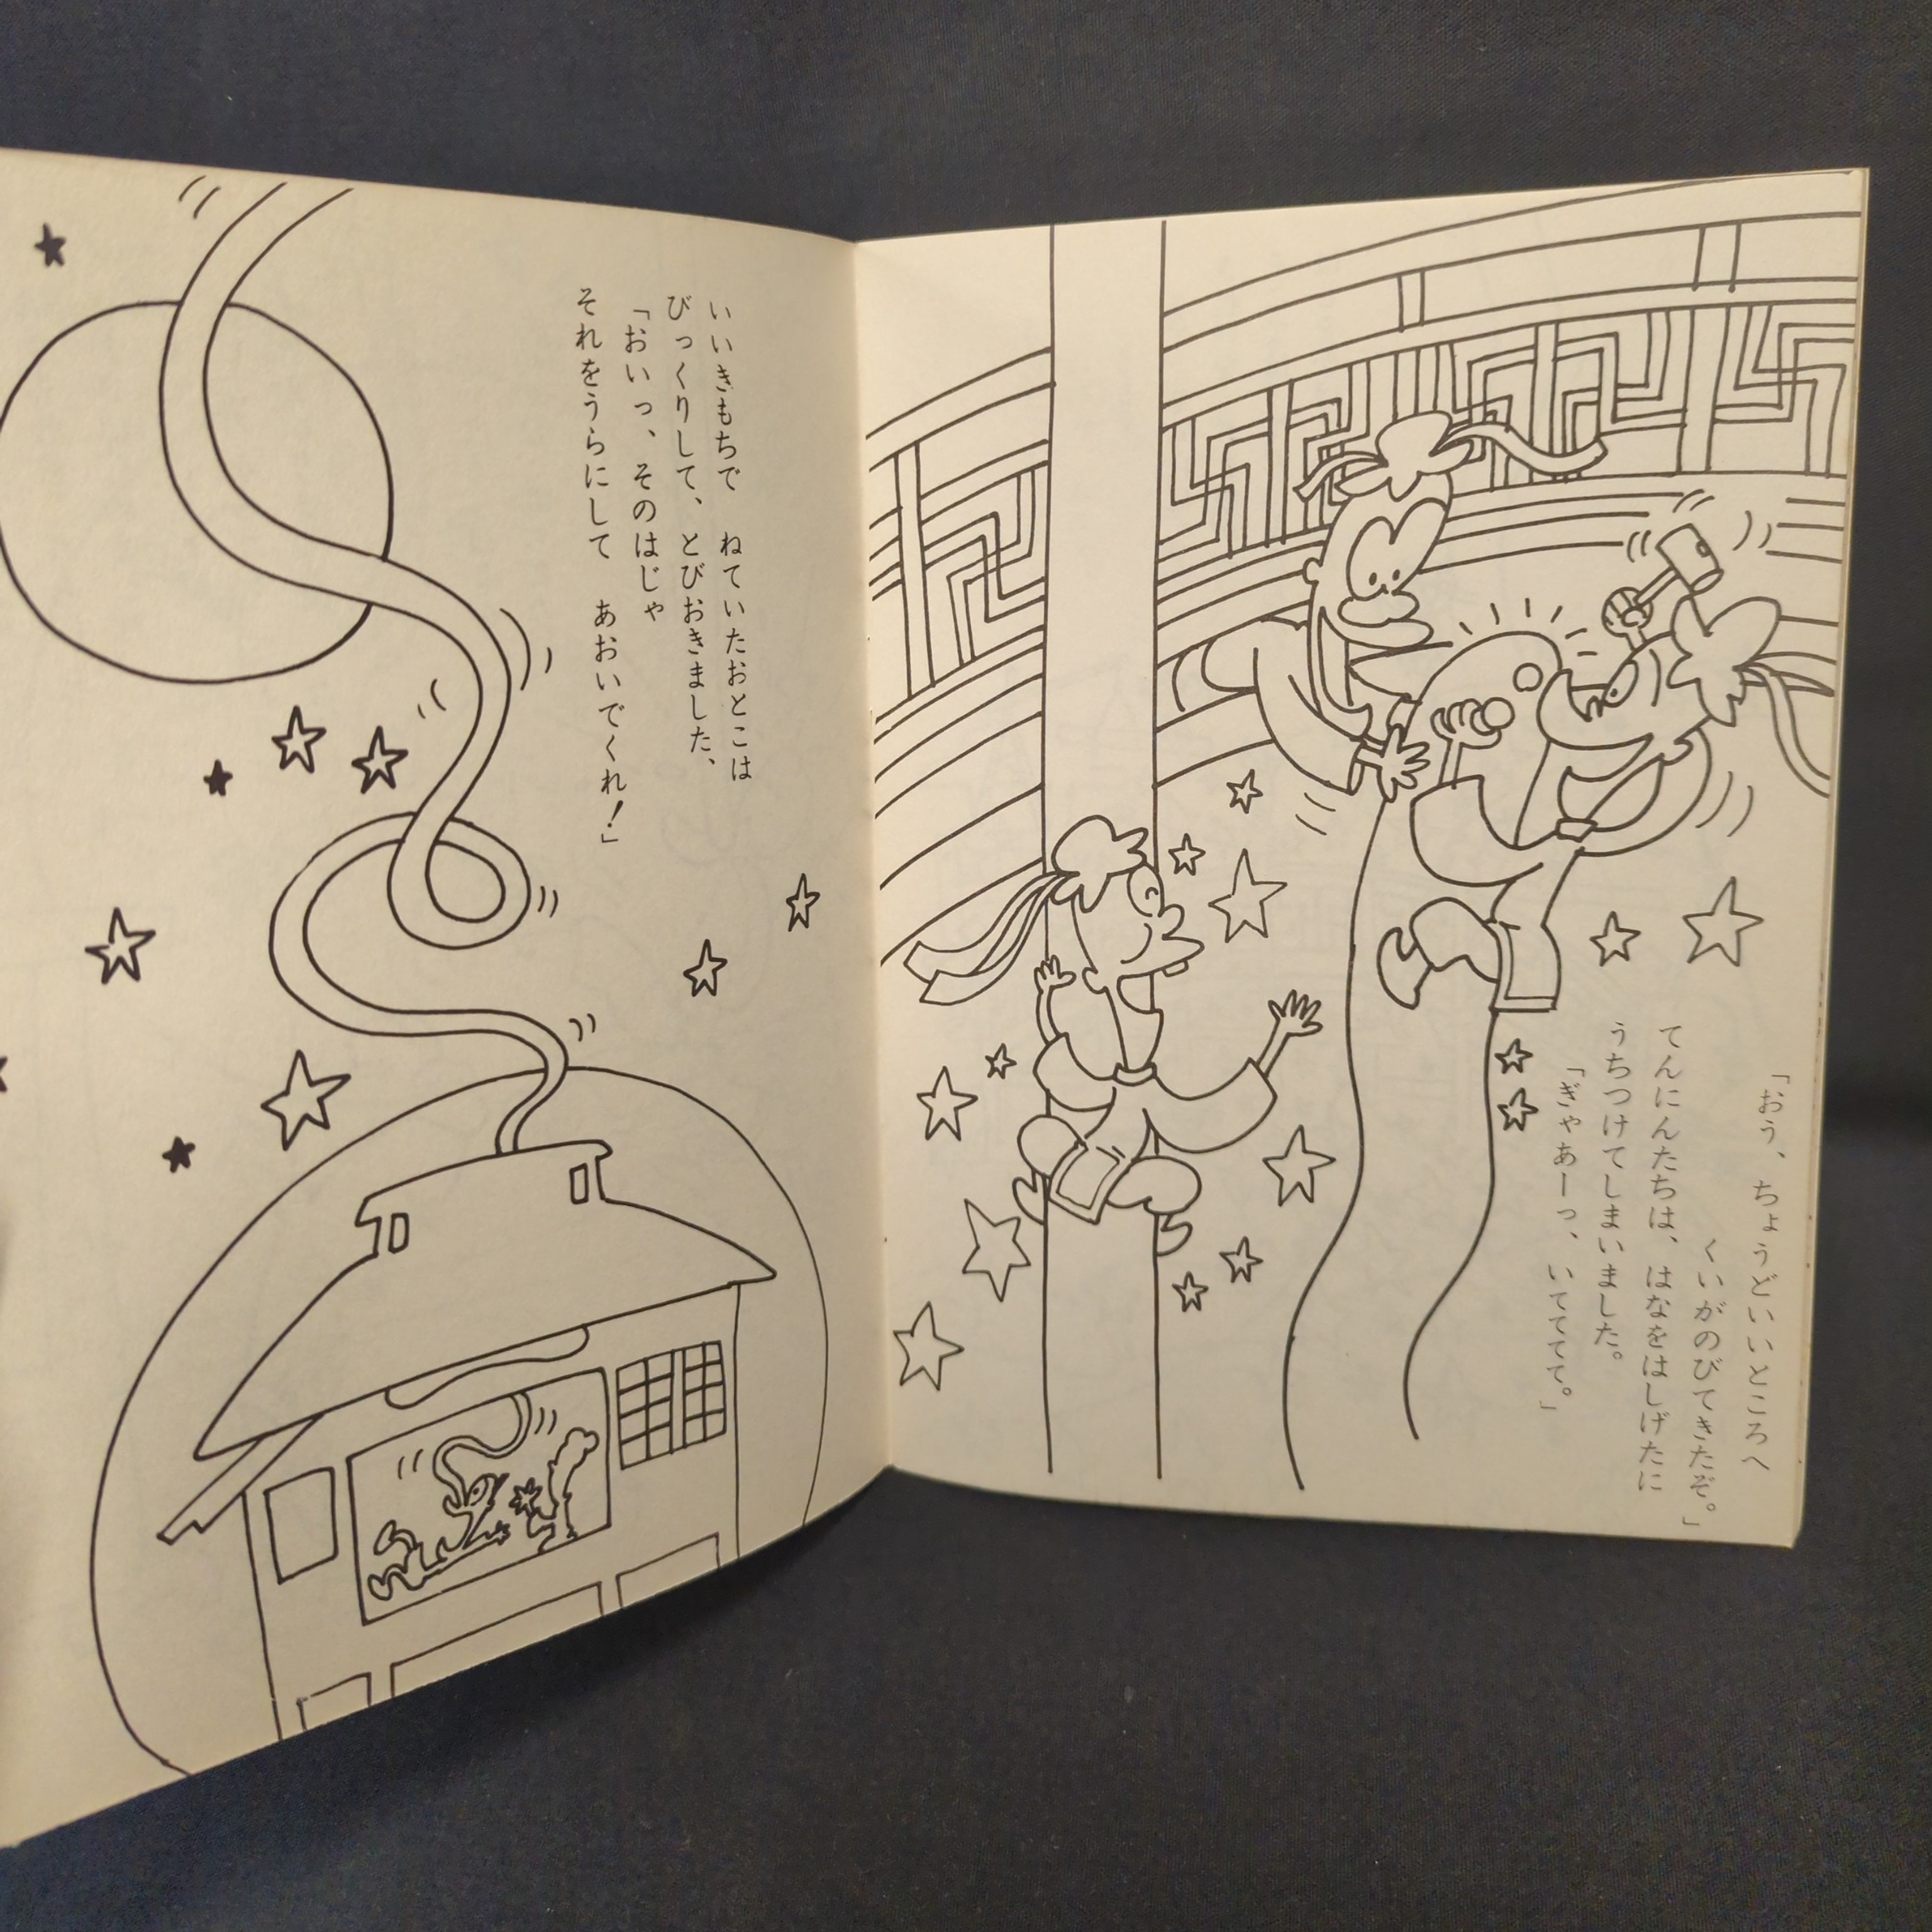 「おう、ちょうどいいところへ
くいがのびてきたぞ。」
てんにんたちは、はなをはしげたに
うちつけてしまいました。
「ぎゃあーっ、いてててて。」
いいきもちで　ねていたおとこは
びっくりして、とびおきました、
「おいっ、そのはじゃ
それをうらにして　あおいでくれ!」